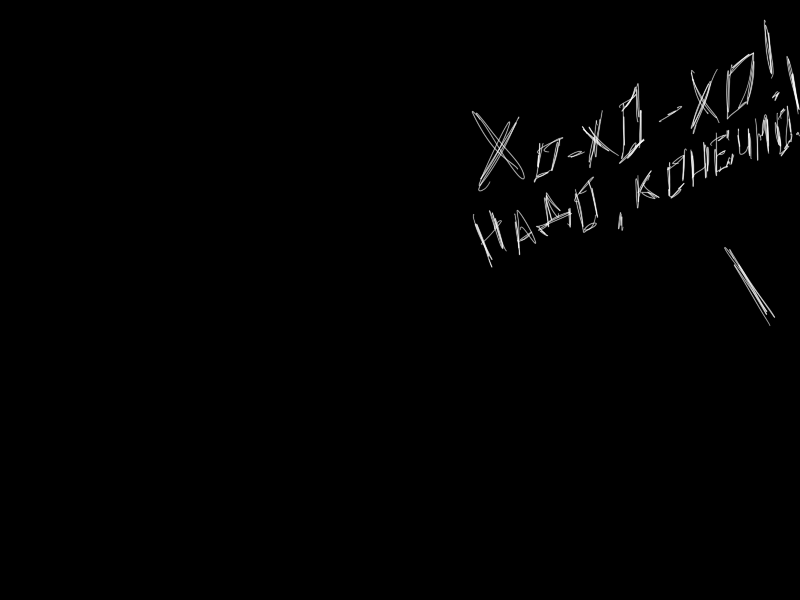 Хо-хо-хо!
Надо, конечно!